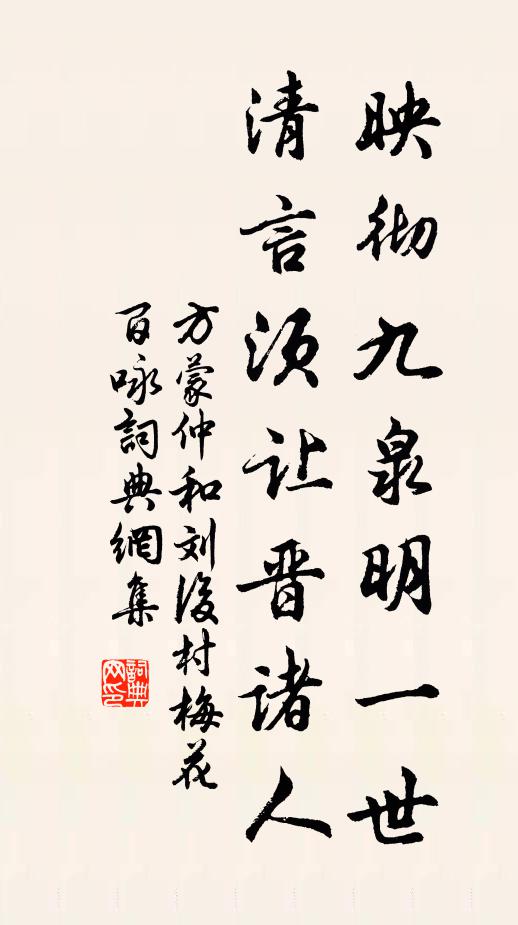 映彻九泉明一世
清言须让晋诸人
方蒙仲和刘後村梅花
百咏詞典網集
詞典网印